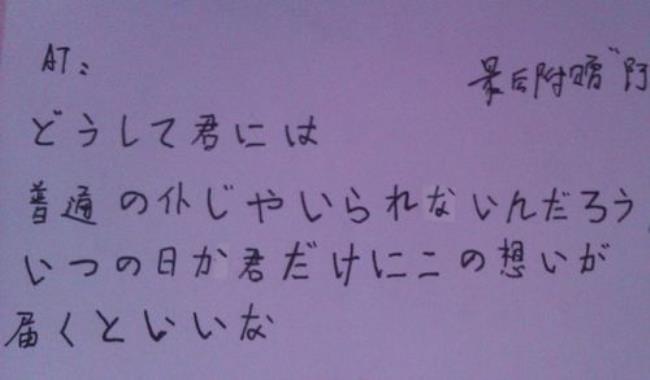 AT:
最后附赠"阿
どうして君には
普通の仆じゃいられないんだろう
いつの日か君だけにこの想いが
届くといいな